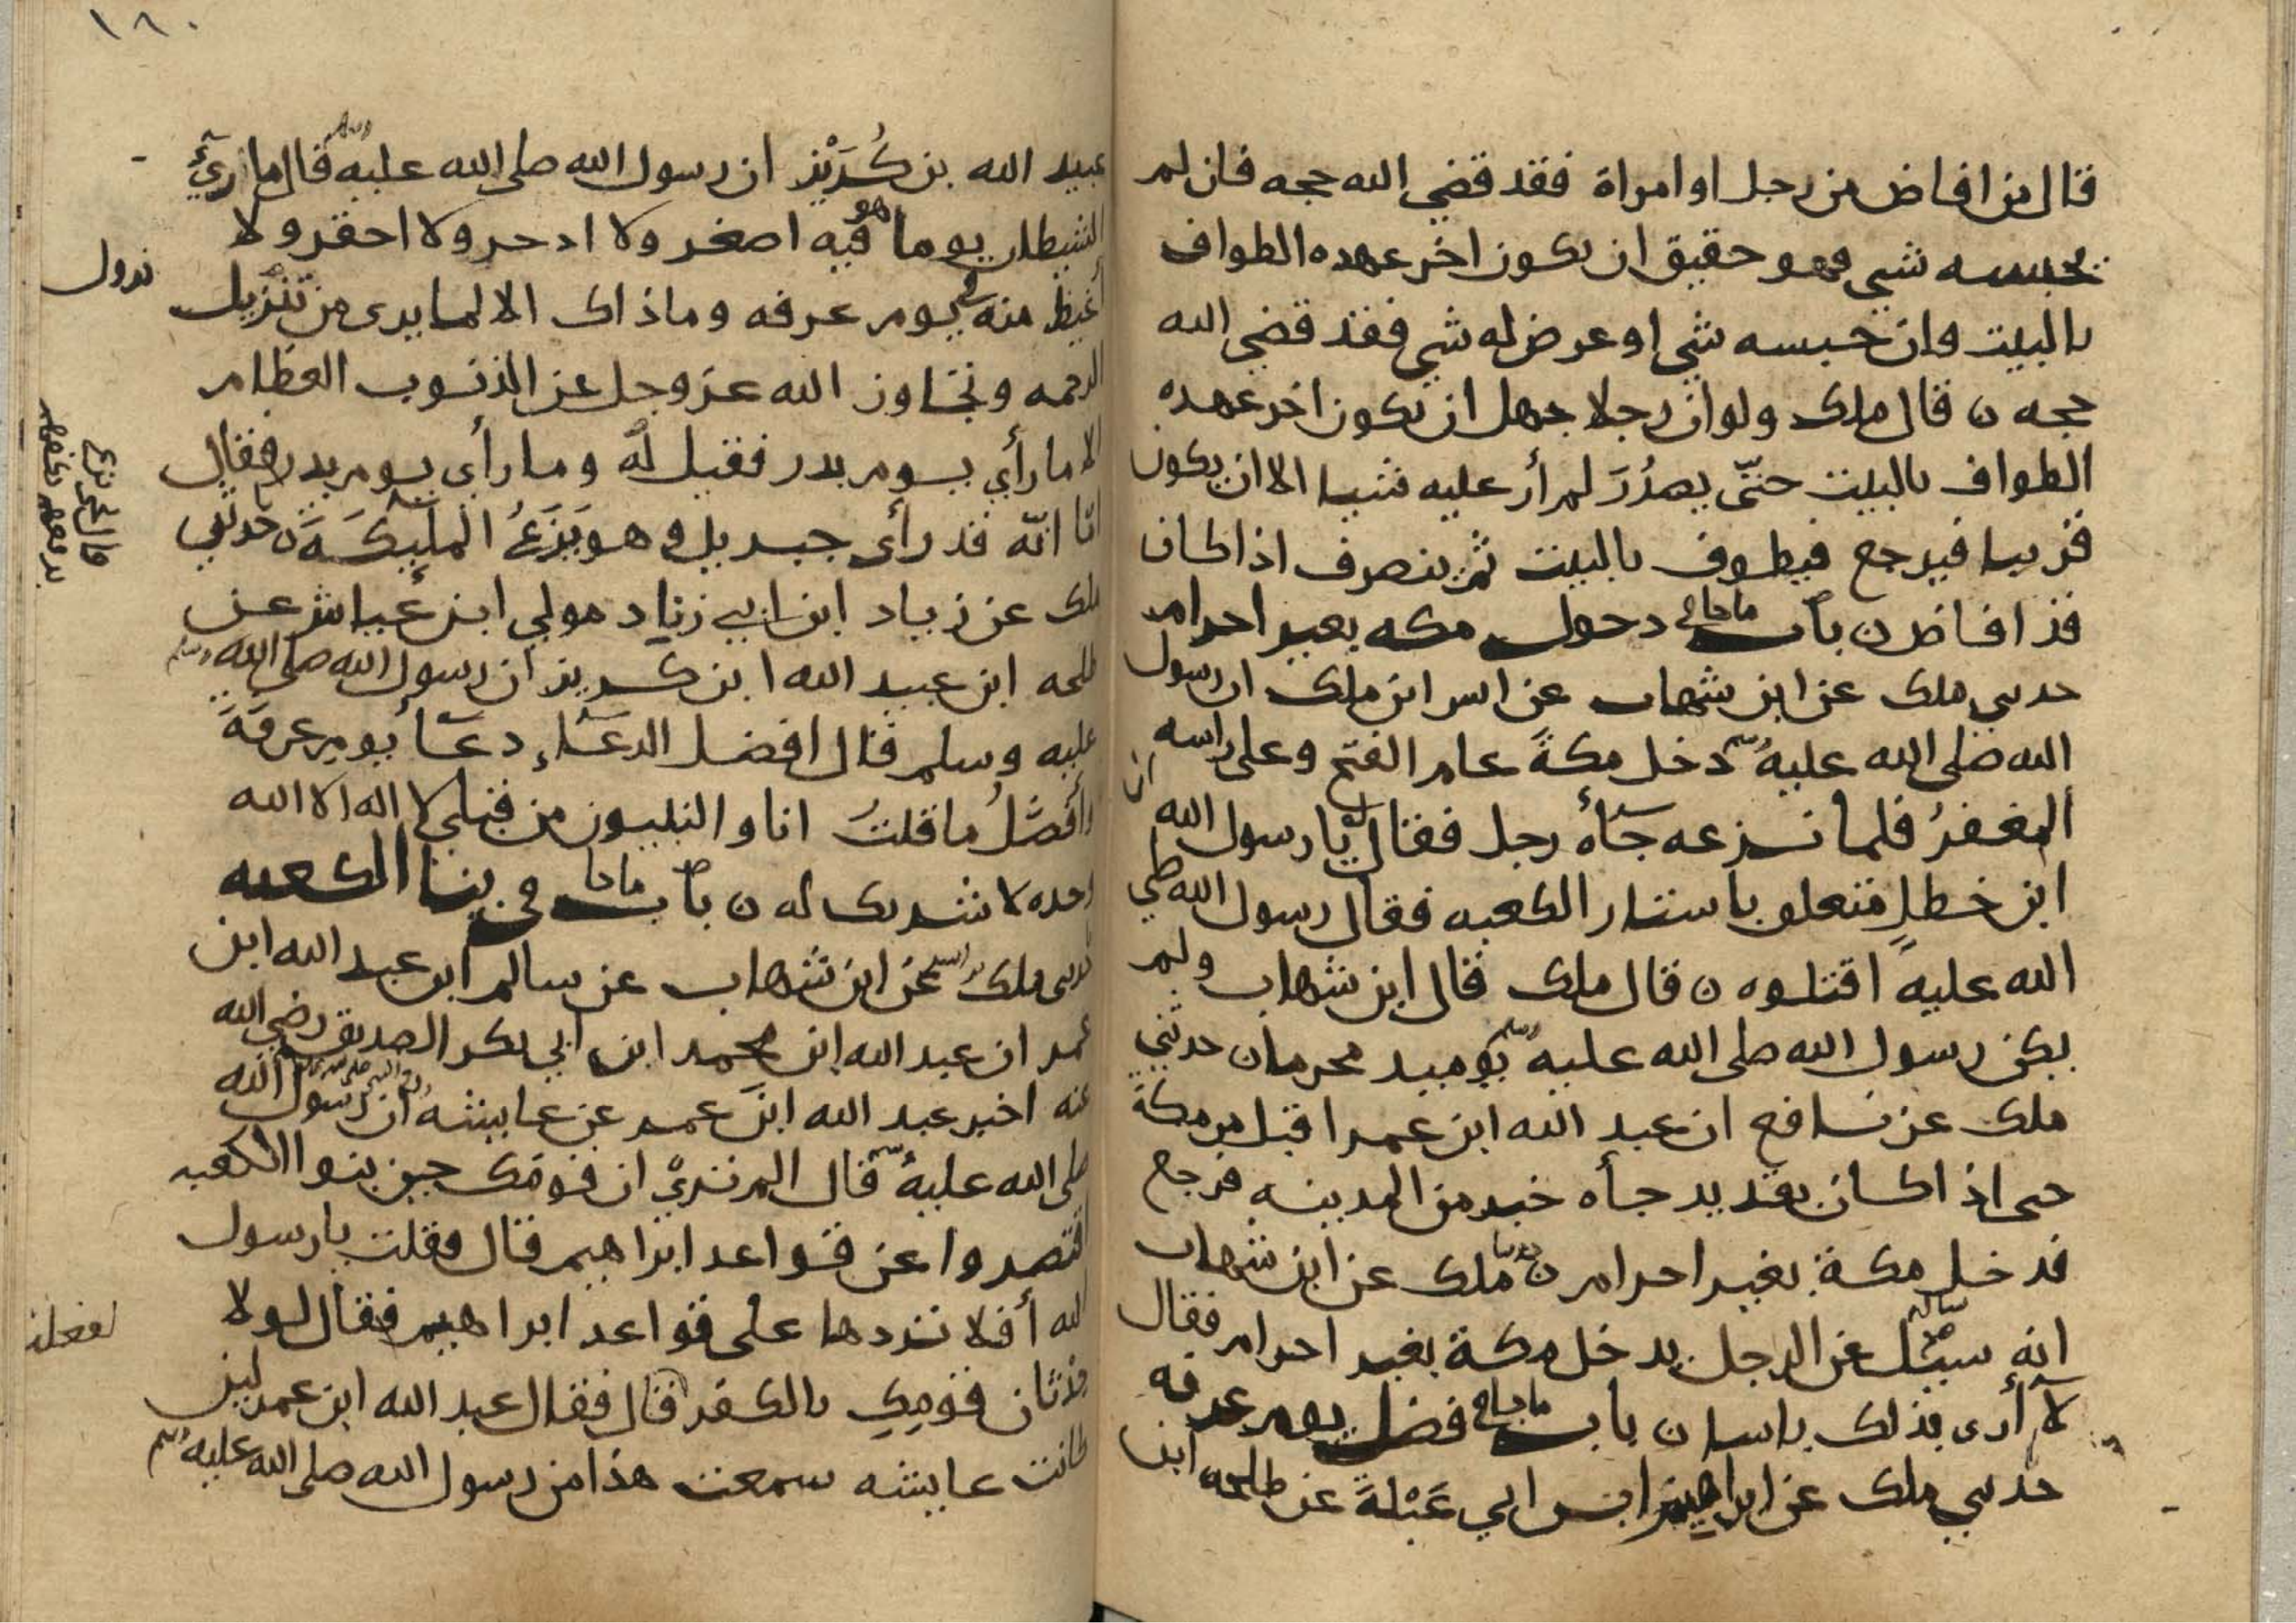 قال من افاض من رجل او امراة فقد قضي الله حجه فان لم
يحبسه شي فهو حقيق ان يكون اخر عهده الطواف
بالبيت وان حبسه شي او عرض له شي فقد قضي الله
حجه ن قال ملك ولو ان رجلا جهل ان يكون اخر عهده
الطواف بالبيت حتّى يصدُرَ لم أر عليه شيا الا ان يكون
قريبا فيرجع فيطوف بالبيت ثم ينصرف اذا كان
قد افاض ن باب ماجاء في دخول مكه بغير احرام
حدثني ملك عن ابن شهاب عن انس ابن ملك ان رسول
الله صلى الله عليه وسلم دخل مكة عام الفتح وعلى راسه
المغفرُ فلما نزعه جأه رجل فقال له يا رسول الله ان
ابن خطلٍ متعلق باستار الكعبه فقال رسول الله صلى
الله عليه اقتلوه ن قال ملك قال ابن شهاب ولم
يكن رسول الله صلى الله عليه وسلم يوميد محرما ن حدثني
ملك عن نافع ان عبد الله ابن عمر اقبل من مكة
حتى اذا كان بقديد جأه خبر من المدينه فرجع
فدخل مكة بغير احرام ن حدثنا ملك عن ابن شهاب
انه سيل عن الرجل يدخل مكة بغير احرام فقال
لا أرى بذلك باسا ن باب ماجاء في فضل يوم عرفه
حدثني ملك عن ابراهيم ابن ابي عَبْلةَ عن طلحه ابن
١٨٠
عبيد الله بن كُرَيْز ان رسول الله صلى الله عليه وسلم قال ما رُئي
الشيطان يوما هو فيه اصغر ولا ادحر ولا احقر ولا
أغيظ منه في يوم عرفه وما ذاك الا لما يرى من تنزيل
نزول
الرحمه وتجاوز الله عز وجل عن الذنوب العظام
الا ما رأي يوم بدر فقيل له وما رأي يوم بدر فقال
انا انّه قد رأى جبريل وهو يَزَعُ المليكَةَ ن حدثني
ملك عن زياد ابن ابي زياد مولي ابن عياش عن
طلحه ابن عبيد الله ابن كريز ان رسول الله صلى الله وسلم
عليه وسلم قال افضل الدعاء دعا يوم عرفَةَ
وأفضلُ ما قلتُ انا والنبيون من قبلي لا اله الا الله
وحده لا شريك له ن باب ماجا في بنا الكعبه
حدثني ملك عن ابن شهاب عن سالم ابن عبد الله ابن
عمر ان عبد الله ابن محمد ابن ابي بكر الصديق رضي الله
عنه اخبر عبد الله ابن عمر عن عايشه ان رسول الله
صلى الله عليه وسلم قال الم تريْ ان قومك حين بنوا الكعبه
اقتصروا عن قواعد ابراهيم قال فقلت يا رسول
الله أفلا تردها على قواعد ابراهيم فقال لولا
حدثان قومِكِ بالكفر قال فقال عبد الله ابن عمر لين
لفعلت
كانت عايشه سمعت هذا من رسول الله صلى الله عليه وسلم